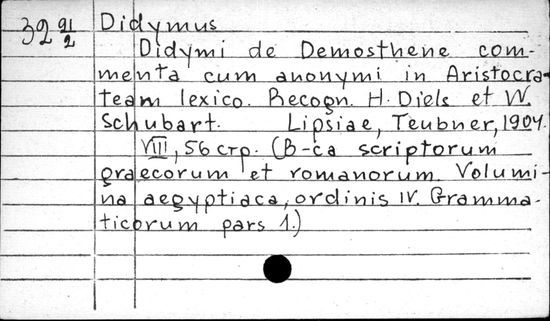 39 21/2 Didymus
Didymi de Demosthene com-
menta cum anonymi in Aristocra-
team lexico. Recogn. H. Diels et W.
Schubart. Lipsiae, Teubner, 1904.
VIII, 56 стр. (B-ca scriptorum
graecorum et romanorum. Volumi-
na aegyptiaca, ordinis IV. Gramma-
ticorum pars 1.)